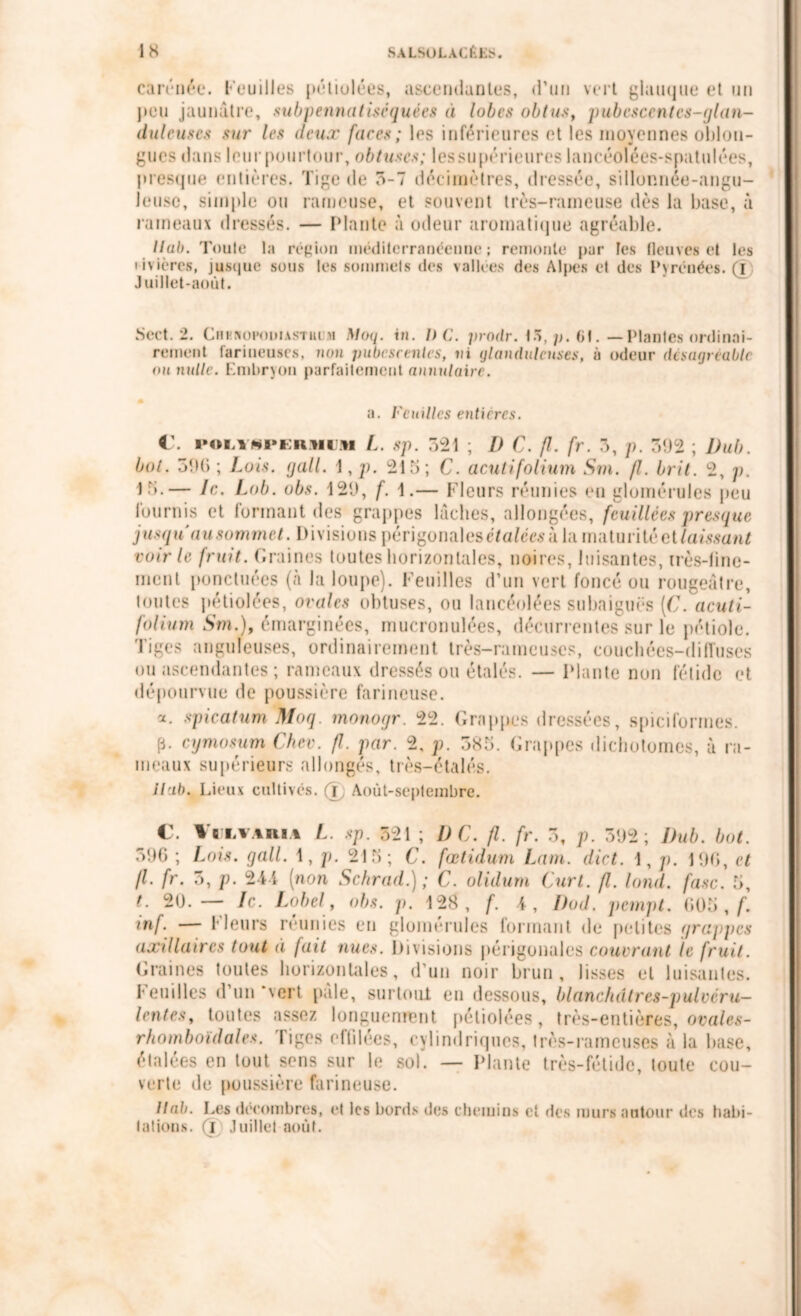 18 SALSOLACÉES.
carénée. Feuilles pétiolées, ascendantes, d'un vert glauque et un
peu jaunâtre, subpennatiséquées à lobes obtus, pubescentes-glan-
duleuses sur les deux faces; les inférieures et les moyennes oblon-
gues dans leur pourtour, obtuses; les supérieures lancéolées-spatulées,
presque entières. Tige de 3-7 décimètres, dressée, sillonnée-angu-
leuse, simple ou rameuse, et souvent très-rameuse dès la base, à
rameaux dressés. — Plante à odeur aromatique agréable.
Hab. Toute la région méditerranéenne; remonte par les fleuves et les
rivières, jusque sous les sommets des vallées des Alpes et des Pyrénées. ①
Juillet-août.
Sect. 2. CHENOPODIASTRUM Moq. in. DC. prodr. 13, p. 61. — Plantes ordinai-
rement farineuses, non pubescentes, ni glanduleuses, à odeur désagréable
ou nulle. Embryon parfaitement annulaire.
a. Feuilles entières.
C. POLYSPERMUM L. sp. 321 ; D C. fl. fr. 3, p. 392 ; Dub.
bot. 396 ; Lois. gall. 1, p. 215; C. acutifolium Sm. fl. brit. 2, p.
15.— Ic. Lob. obs. 129, f. 1.— Fleurs réunies en glomérules peu
fournis et formant des grappes lâches, allongées, feuillées presque
jusqu'au sommet. Divisions périgonales étalées à la maturité et laissant
voir le fruit. Graines toutes horizontales, noires, luisantes, très-fine-
ment ponctuées (à la loupe). Feuilles d'un vert foncé ou rougeâtre,
toutes pétiolées, ovales obtuses, ou lancéolées subaiguës (C. acuti-
folium Sm.), émarginées, mucronulées, décurrentes sur le pétiole.
Tiges anguleuses, ordinairement très-rameuses, couchées-diffuses
ou ascendantes ; rameaux dressés ou étalés. — Plante non fétide et
dépourvue de poussière farineuse.
α. spicatum Moq. monogr. 22. Grappes dressées, spiciformes.
β. cymosum Chev. fl. par. 2, p. 385. Grappes dichotomes, à ra-
meaux supérieurs allongés, très-étalés.
Hab. Lieux cultivés. ① Août-septembre.
C. VULVARIA L. sp. 321 ; DC. fl. fr. 3, p. 392; Dub. bot.
396 ; Lois. gall. 1, p. 215; C. fœtidum Lam. dict. 1, p. 196, et
fl. fr. 3, p. 244 (non Schrad.) ; C. olidum Curt. fl. lond. fasc. 5,
t. 20. — Ic. Lobel, obs. p. 128, f. 4, Dod. pempt. 605, f.
inf. — Fleurs réunies en glomérules formant de petites grappes
axillaires tout à fait nues. Divisions périgonales couvrant le fruit.
Graines toutes horizontales, d'un noir brun, lisses et luisantes.
Feuilles d'un vert pâle, surtout en dessous, blanchâtres-pulvéru-
lentes, toutes assez longuement pétiolées, très-entières, ovales-
rhomboïdales. Tiges effilées, cylindriques, très-rameuses à la base,
étalées en tout sens sur le sol. — Plante très-fétide, toute cou-
verte de poussière farineuse.
Hab. Les décombres, et les bords des chemins et des murs autour des habi-
tations. ① Juillet août.